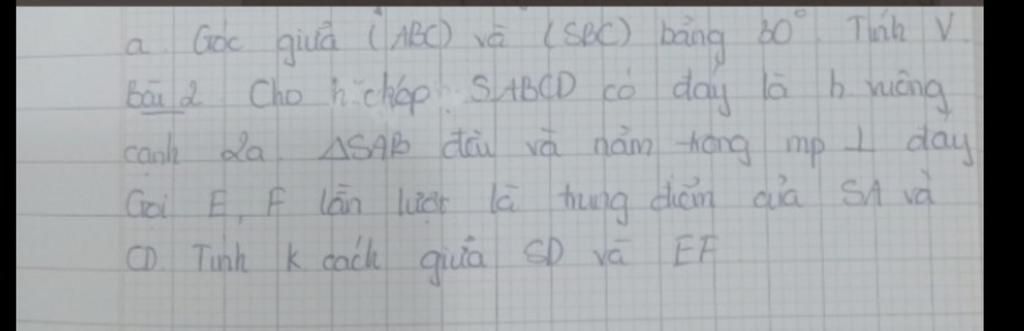 a. Góc giữa (ABC) và (SBC) bằng 30° Tính V.
Bài 2 Cho h.chóp. S.ABCD có đáy là h vuông
cạnh 2a. ΔSAB đều và nằm trong mp ⊥ đáy
Gọi E, F lần lượt là trung điểm của SA và
CD. Tính k cách giữa SD và EF